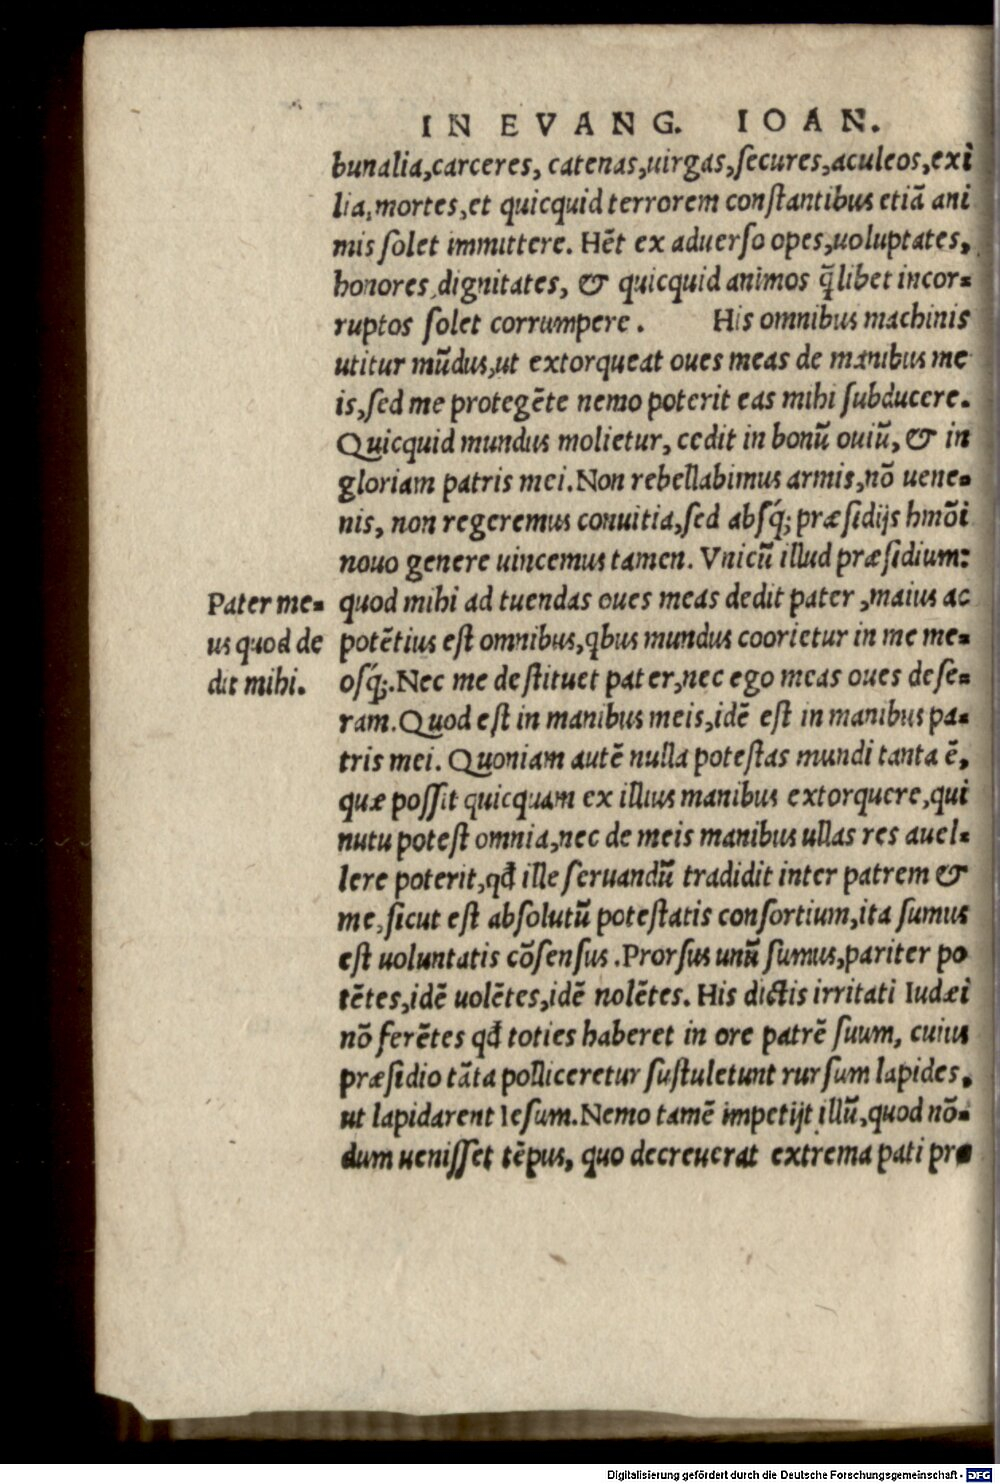 IN EVANG. IOAN.
bunalia,carceres, catenas,uirgas,ſecures,aculeos,exi
lia,mortes,et quicquid terrorem conſtantibus etiã ani
mis ſolet immittere. Hẽt ex aduerſo opes,uoluptates,
honores,dignitates, & quicquid animos q̃libet incor-
ruptos ſolet corrumpere. His omnibus machinis
utitur mũdus,ut extorqueat oues meas de manibus me
is,ſed me protegẽte nemo poterit eas mihi ſubducere.
Quicquid mundus molietur, cedit in bonũ ouiũ, & in
gloriam patris mei. Non rebellabimus armis,nõ uene-
nis, non regeremus conuitia,ſed abſq́; præſidijs hmõi
nouo genere uincemus tamen. Vnicũ illud præſidium:
Pater me-
us quod de
dit mihi.
quod mihi ad tuendas oues meas dedit pater,maius ac
potẽtius eſt omnibus,qbus mundus coorietur in me me-
oſq́;. Nec me deſtituet pater,nec ego meas oues deſe-
ram. Quod eſt in manibus meis,idẽ eſt in manibus pa-
tris mei. Quoniam autẽ nulla poteſtas mundi tanta ẽ,
quæ poſſit quicquam ex illius manibus extorquere,qui
nutu poteſt omnia,nec de meis manibus ullas res auel-
lere poterit,qđ ille ſeruandũ tradidit inter patrem &
me,ſicut eſt abſolutũ poteſtatis conſortium,ita ſumus
eſt uoluntatis cõſenſus. Prorſus unũ ſumus,pariter po
tẽtes,idẽ uolẽtes,idẽ nolẽtes. His dictis irritati Iudæi
nõ ferẽtes qđ toties haberet in ore patrẽ ſuum, cuius
præſidio tãta polliceretur ſuſtuletunt rurſum lapides,
ut lapidarent Ieſum. Nemo tamẽ impetijt illũ,quod nõ-
dum ueniſſet tẽpus, quo decreuerat extrema pati pro
Digitalisierung gefördert durch die Deutsche Forschungsgemeinschaft - DFG